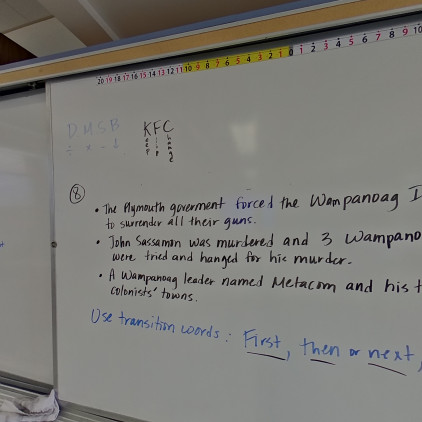 20 19 18 17 16 15 14 13 12 11 10 9 8 7 6 5 4 3 2 1 0 1 2 3 4 5 6 7 8 9 10
D M S B KFC
÷ × - ↓ eep lip hange
8
• The Plymouth goverment forced the Wampanoag I
to surrender all their guns.
• John Sassamon was murdered and 3 Wampano
were tried and hanged for his murder.
• A Wampanoag leader named Metacom and his t
colonists' towns.
Use transition words: First, then or next,